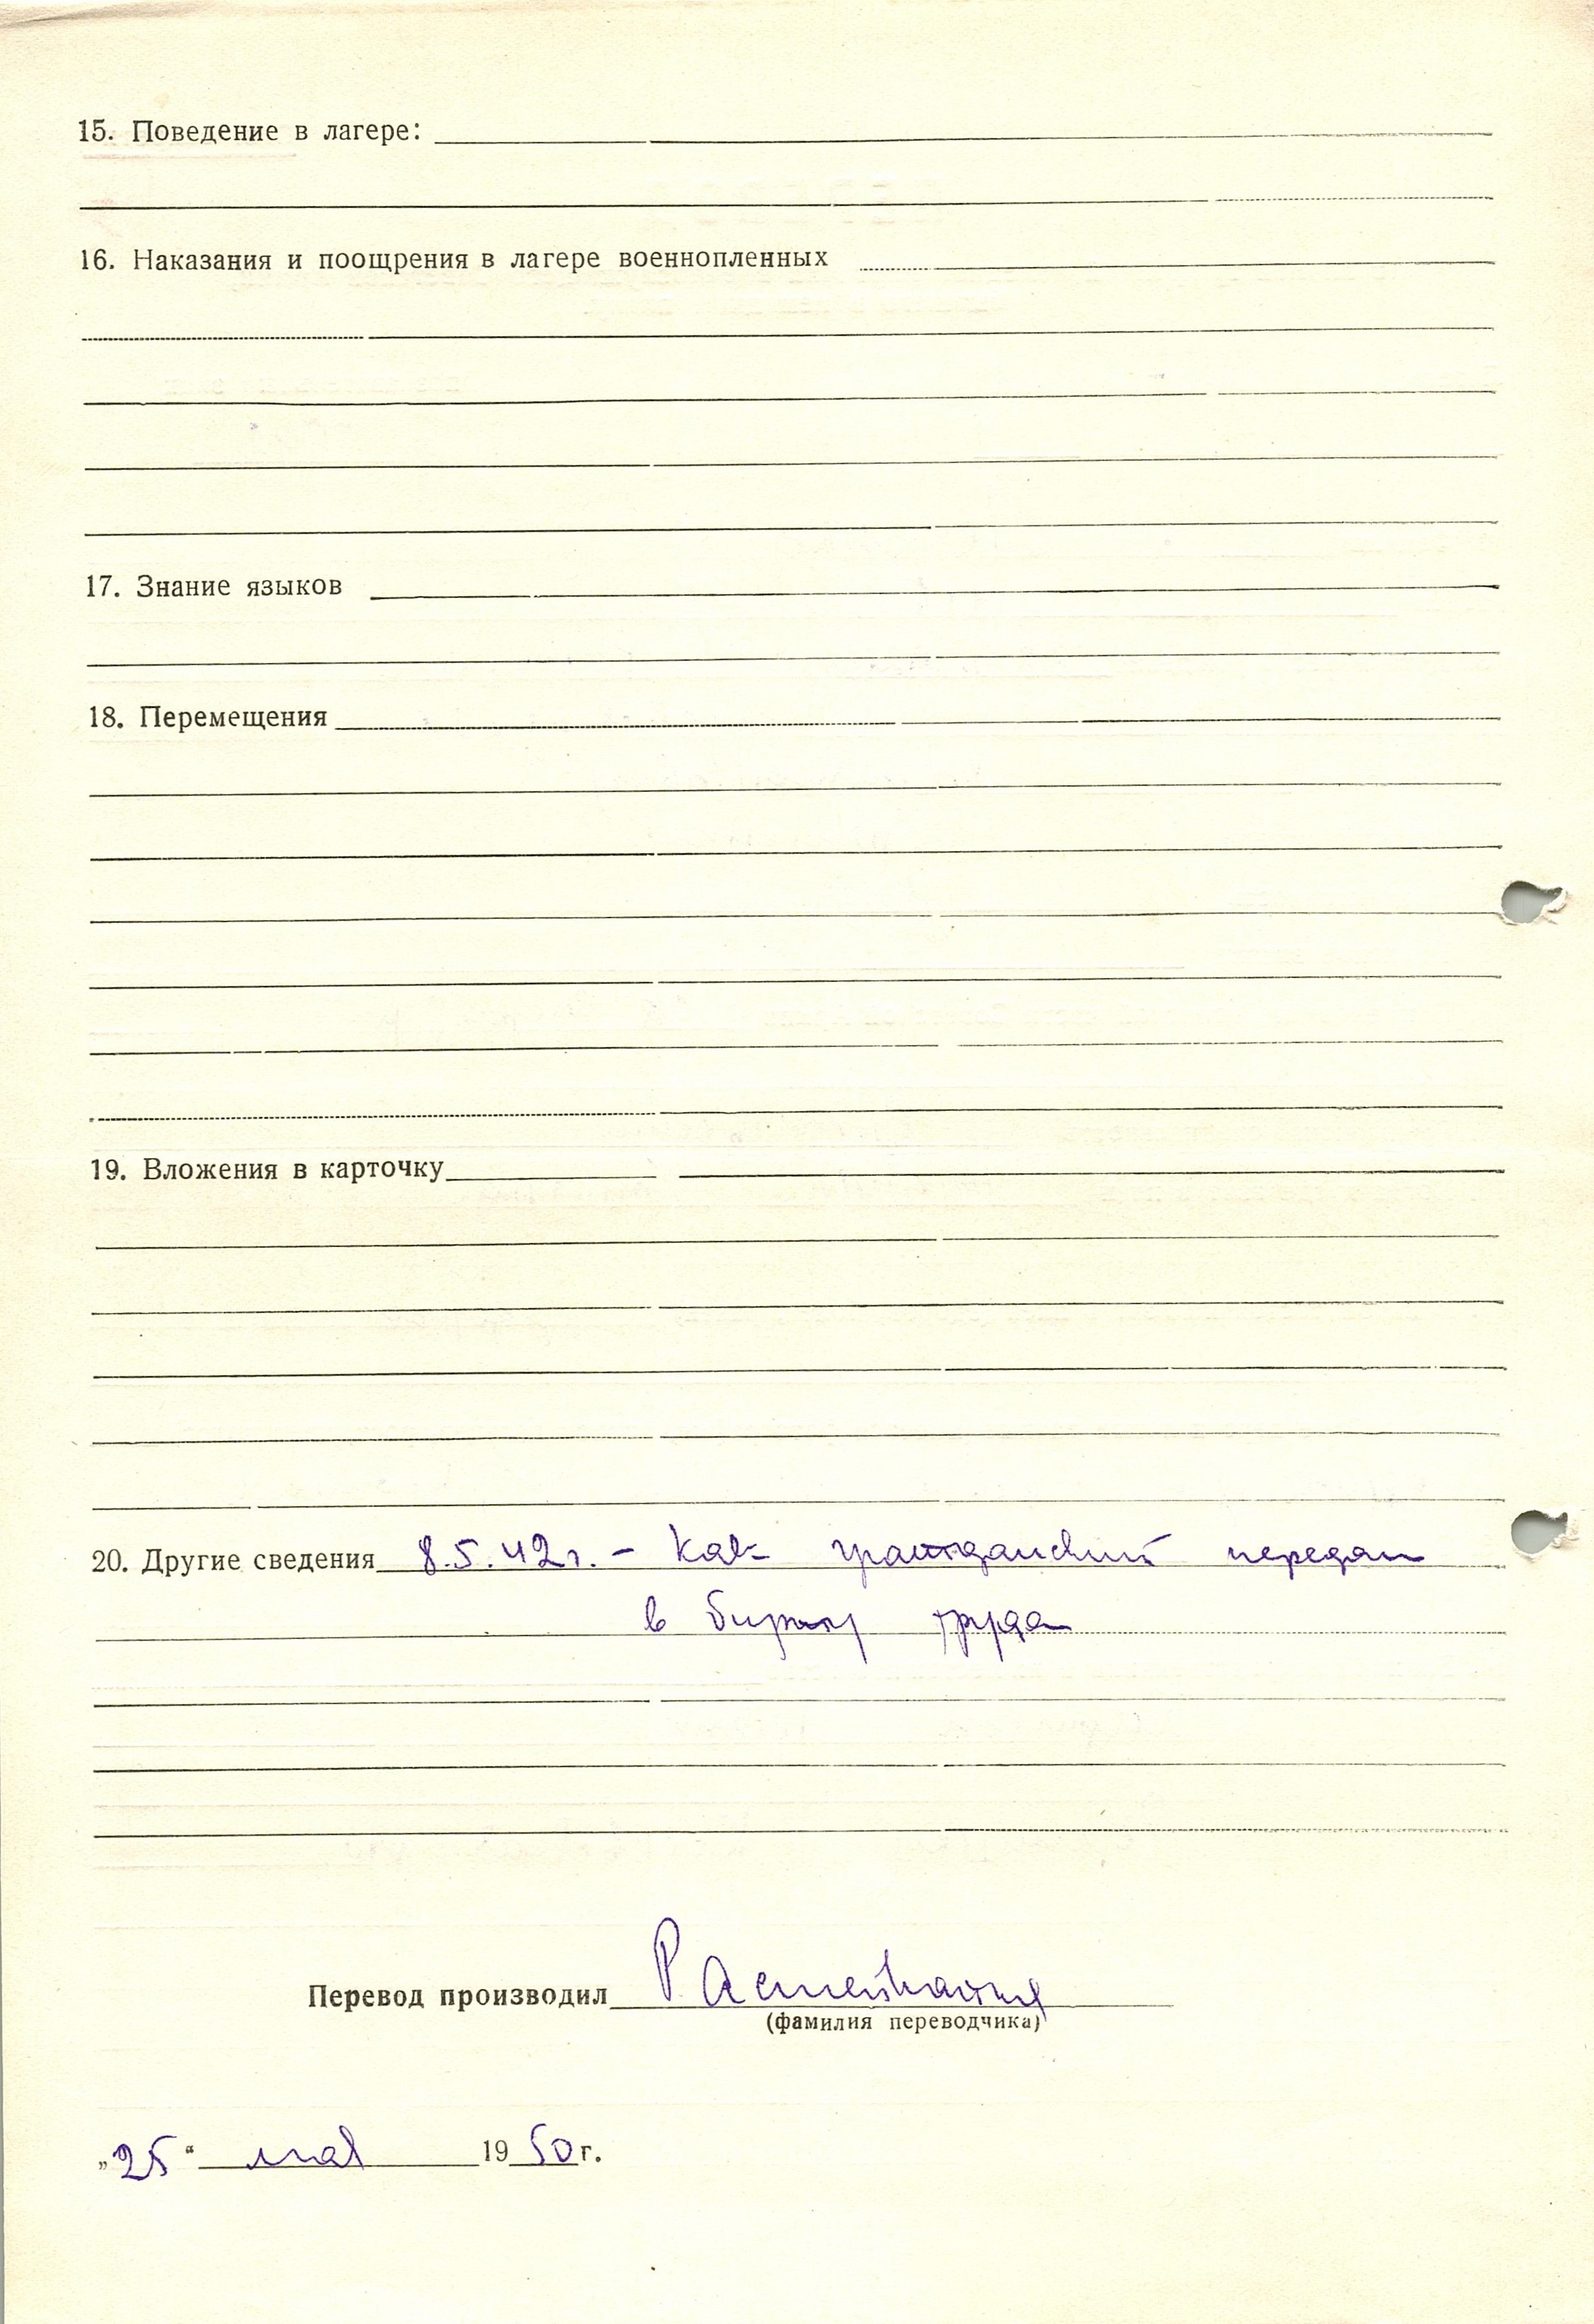 15. Поведение в лагере:
16. Наказания и поощрения в лагере военнопленных
17. Знание языков
18. Перемещения
19. Вложения в карточку
20. Другие сведения 8.5.42г. - как гражданский передан
в биржу труда
Перевод производил
(фамилия переводчика)
„25“ мая 1950г.